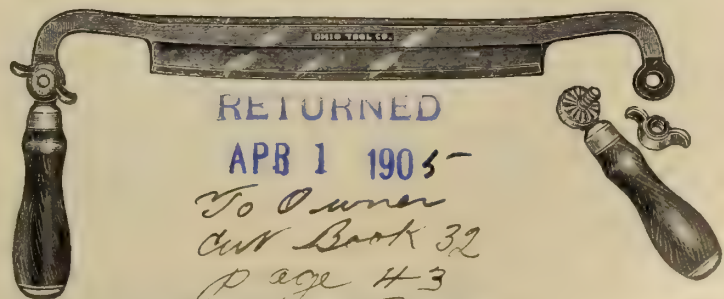 OHIO TOOL CO.
RETURNED
APR 1 1905
To Owner
Cut Book 32
Page 43